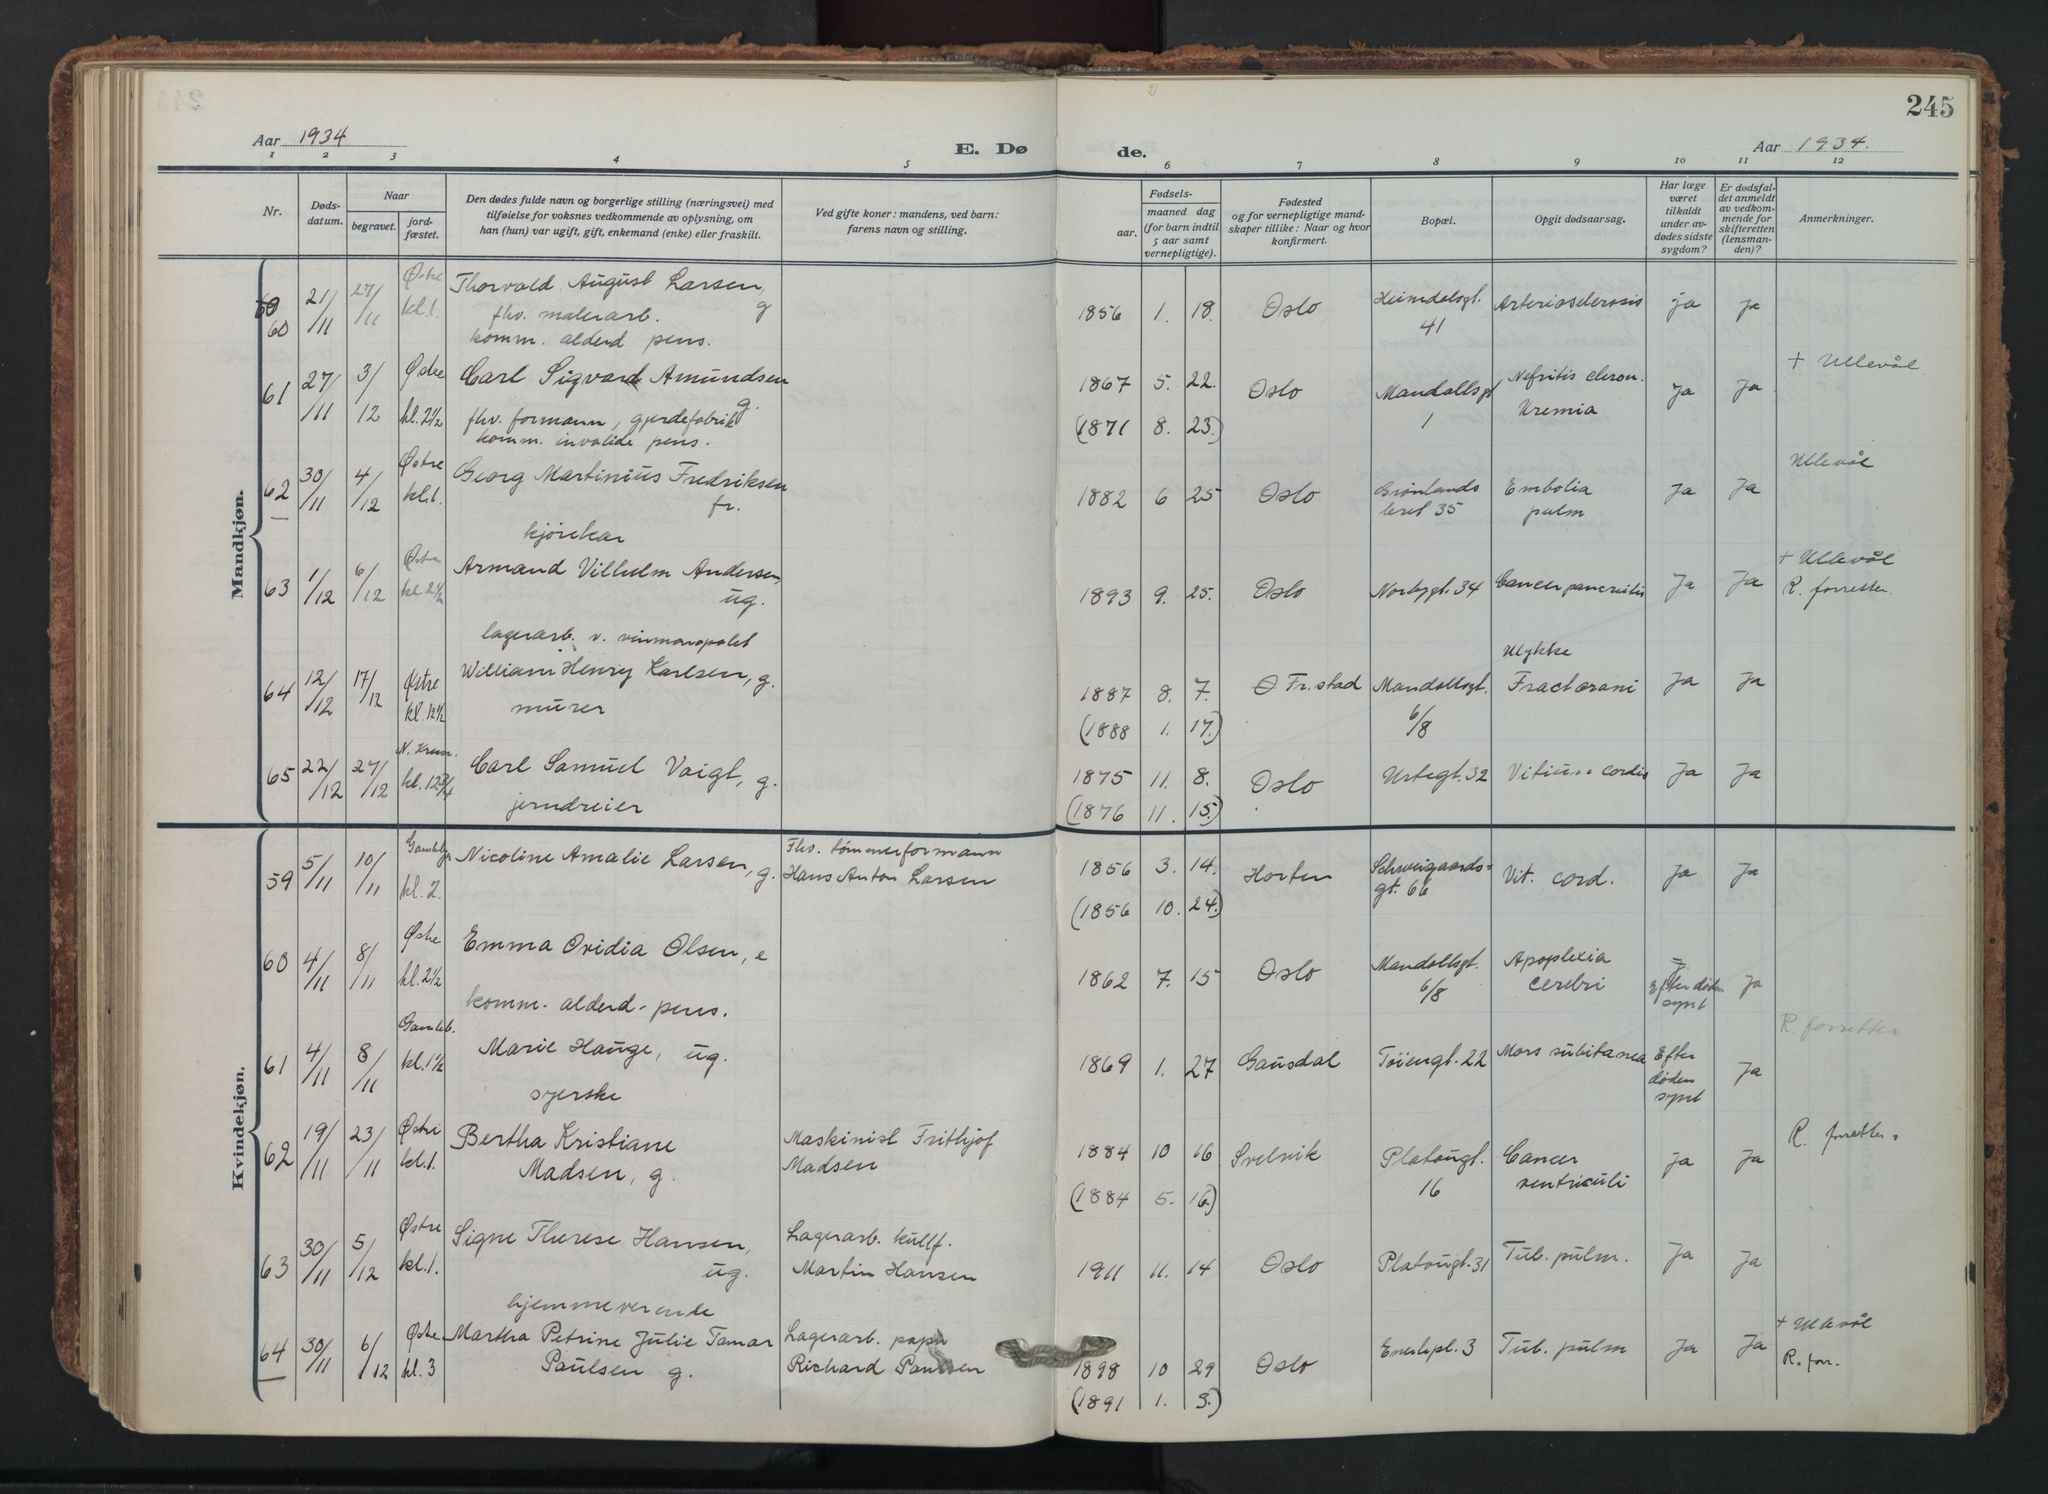 245
Aar 1934
E. Dø
de.
Aar 1934.
1 2 3 4 5 6 7 8 9 10 11 12
Nr.
Døds-
datum.
Naar
begravet.
jord-
fæstet.
Den dødes fulde navn og borgerlige stilling (næringsvei) med
tilføielse for voksnes vedkommende av oplysning, om
han (hun) var ugift, gift, enkemand (enke) eller fraskilt.
Ved gifte koner: mandens, ved barn:
farens navn og stilling.
Fødsels-
aar.
maaned dag
(for barn indtil
5 aar samt
vernepligtige).
Fødested
og for vernepligtige mand-
skaper tillike: Naar og hvor
konfirmert.
Bopæl.
Opgit dødsaarsag.
Har læge
været
tilkaldt
under av-
dødes sidste
sygdom?
Er dødsfal-
det anmeldt
av vedkom-
mende for
skifteretten
(lensman-
den)?
Anmerkninger.
Mandkjøn.
60 21/11 27/11 Østre kl. 1. Thorvald August Larsen, g 1856 1. 18. Oslo Heimdalsgt. 41 Arteriosclerosis ja Ja
fhv. malerarb.
komm. alderd pens.
61 27/11 3/12 Østre kl. 2 1/2 Carl Sigvard Amundsen g. 1867 5. 22. Oslo Mandallsgt 1 Nefritis chron. Uremia Ja Ja + Ullevål
fhv. formann, gjerdefabrik
komm. invalide pens.
(1871 8. 23.)
62 30/11 4/12 Østre kl. 1. Georg Martinius Fredriksen fr. 1882 6 25 Oslo Grønlands leret 35 Embolia pulm Ja Ja Ullevål
kjørekar
63 1/12 6/12 Østre kl 2 1/2 Armand Vilhelm Andersen, ug. 1893 9. 25. Oslo Norbygt. 34 Cancer pancreitis Ja Ja + Ullevål R. forretter.
lagerarb. v. vinmonopolet
64 12/12 17/12 Østre kl. 12 1/2 William Henry Karlsen, g. 1887 8. 7. Fr.stad Mandallsgt. 6/8 Ulykke Fract. crani Ja Ja
murer
(1888 1. 17.)
65 22/12 27/12 N. Krem. kl. 12 3/4 Carl Samuel Voigt, g. 1875 11. 8. Oslo Urtegt. 32 Vitium cordis Ja Ja
jerndreier
(1876 11. 15.)
Kvindekjøn.
59 5/11 10/11 Gamleby kl. 2. Nicoline Amalie Larsen, g. Fhv. tømmerformann Hans Anton Larsen 1856 3. 14. Horten Schweigaards-gt. 66 Vit. cord. Ja Ja
(1856 10. 24.)
60 4/11 8/11 Østre kl. 2 1/2 Emma Ovidia Olsen, e 1862 7. 15 Oslo Mandallsgt. 6/8 Apoplexia cerebri Efter døden synt Ja
komm. alderd. pens.
61 4/11 8/11 Gamleb. kl. 1 1/2 Marie Hauge, ug. 1869 1. 27 Gausdal Tøiengt. 22 Mors subitanea Efter døden synt Ja R. forretter
syerske
62 19/11 23/11 Østre kl. 1. Bertha Kristiane Madsen, g. Maskinist Frithjof Madsen 1884 10 16 Svelvik Platougt. 16 Cancer ventriculi Ja Ja R. forretter.
(1884 5. 16.)
63 30/11 5/12 Østre kl. 1. Signe Therese Hansen, ug. Lagerarb. kullf. Martin Hansen 1911 11. 14 Oslo Platougt. 31 Tub. pulm. Ja Ja
hjemmeverende
64 30/11 6/12 Østre kl. 3 Martha Petrine Julie Tamar Paulsen g. Lagerarb. papir Richard Paulsen 1898 10 29 Oslo Enerhpl. 3 Tub. pulm Ja Ja + Ullevål R. forr.
(1891 1. 3.)